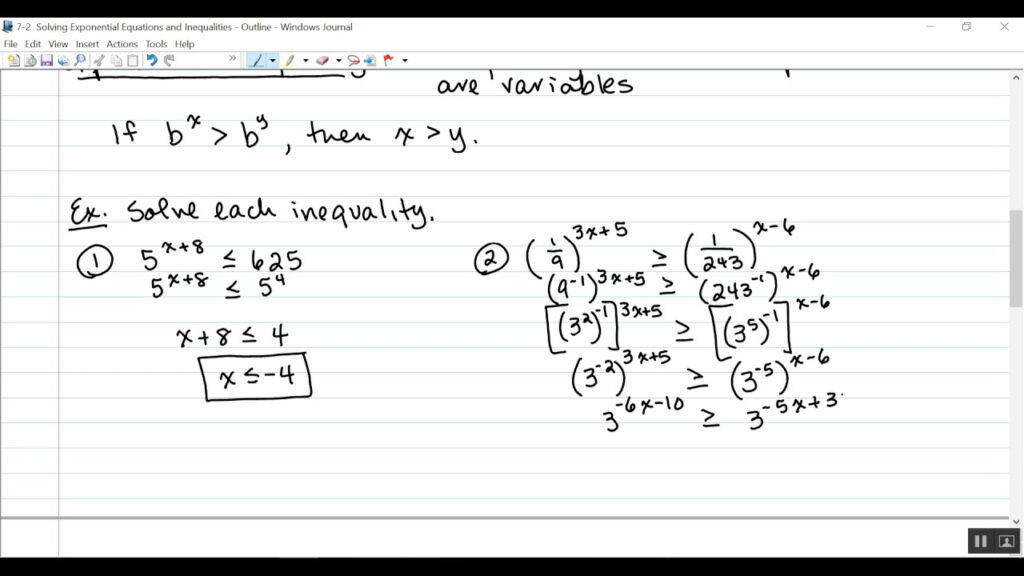 7-2 Solving Exponential Equations and Inequalities - Outline - Windows Journal
File Edit View Insert Actions Tools Help
are variables
If b^x > b^y, then x > y.
Ex. Solve each inequality.
① 5^(x+8) ≤ 625
5^(x+8) ≤ 5^4
x+8 ≤ 4
x ≤ -4
② (1/9)^(3x+5) ≥ (1/243)^(x-6)
(9^-1)^(3x+5) ≥ (243^-1)^(x-6)
[(3^2)^-1]^(3x+5) ≥ [(3^5)^-1]^(x-6)
(3^-2)^(3x+5) ≥ (3^-5)^(x-6)
3^(-6x-10) ≥ 3^(-5x+3